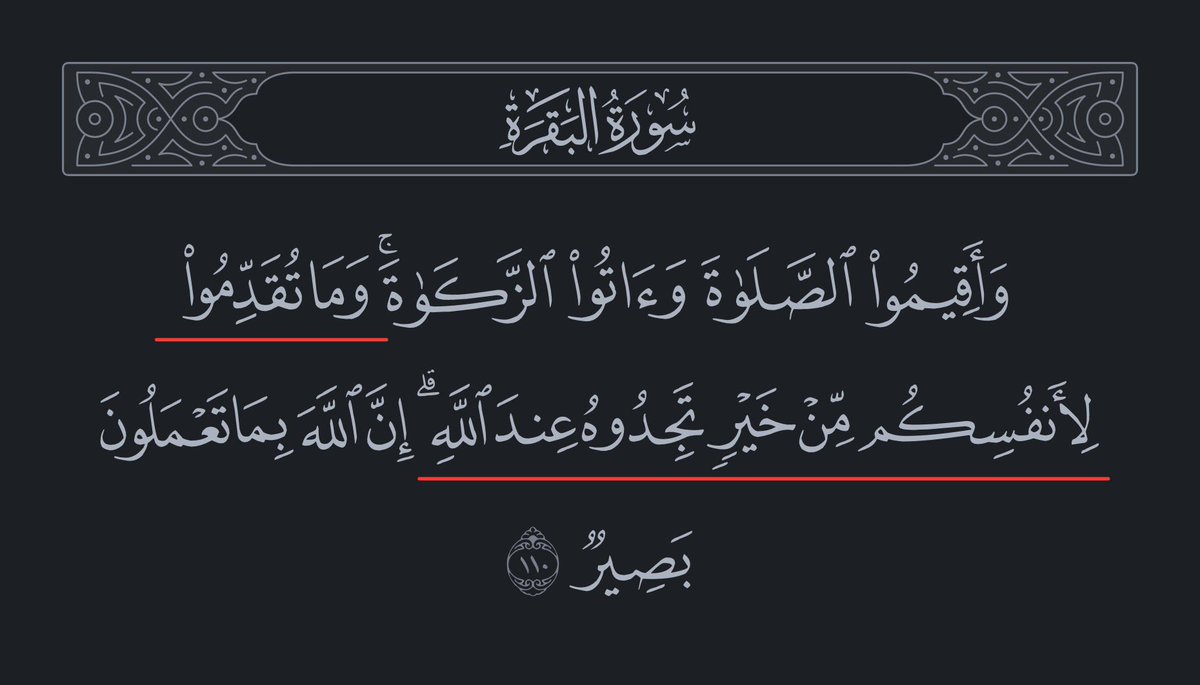 سُورَةُ البَقَرَةِ
وَأَقِيمُوا۟ ٱلصَّلَوٰةَ وَءَاتُوا۟ ٱلزَّكَوٰةَۚ وَمَا تُقَدِّمُوا۟
لِأَنفُسِكُم مِّنْ خَيْرٍ تَجِدُوهُ عِندَ ٱللَّهِۗ إِنَّ ٱللَّهَ بِمَا تَعْمَلُونَ
بَصِيرٌ ١١٠